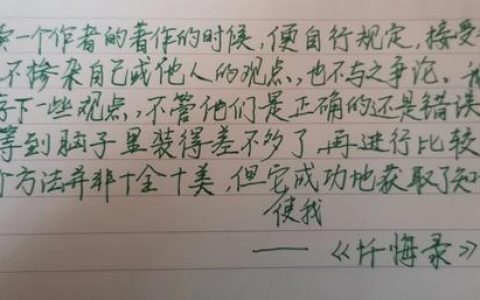 一个作者的著作的时候，便自行规定，接受
不掺杂自己或他人的观点，也不与之争论。
下一些观点，不管他们是正确的还是错误
等到脑子里装得差不多了，再进行比较
方法并非十全十美，但它成功地获取了知
使我
——《忏悔录》